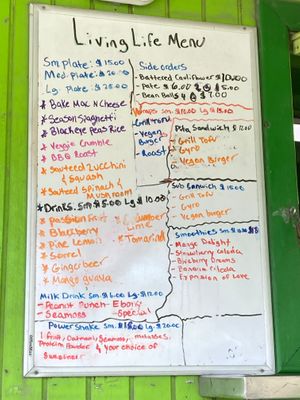 Living Life Menu
Sm. Plate: $15.00
Med. Plate: $20.00
Lg. Plate: $25.00
* Bake Mac N Cheese
* Season Spaghetti
* Blackeye Peas Rice
* Veggie Crumble
* BBQ Roast
* Sauteed Zucchini
& Squash
* Sauteed Spinach &
Mushroom
Side orders
- Battered Cauliflower $10.00
- Pate $6.00 2 @
- Bean Balls 4 @ $7.00
Wraps Sm.
- Grill Tofu
- Vegan
Burger
- Roast
Pita Sandwich $12.00
- Grill Tofu
- Gyro
- Vegan Burger
Sub Sandwich $15.00
- Grill Tofu
- Gyro
- Vegan burger
* Drinks. Sm $5.00 Lg $10.00
* Passion Fruit
* Blackberry
* Pine Lemon
* Sorrel
* Gingerbeer
* Mango guava
* Cucumber
Lime
* Tamarind
Smoothies
- Mango Delight
- Strawberry Colada
- Blueberry Dreams
- Banana Colada
- Expression of Love
Milk Drink Sm. $6.00 Lg. $12.00
- Peanut Punch - Ebony
- Seamoss - Special
Power Shake Sm. Lg. $20.00
1 fruit, Oatmeal, Seamoss, molasses,
Protein Powder & your choice of
Sweetener